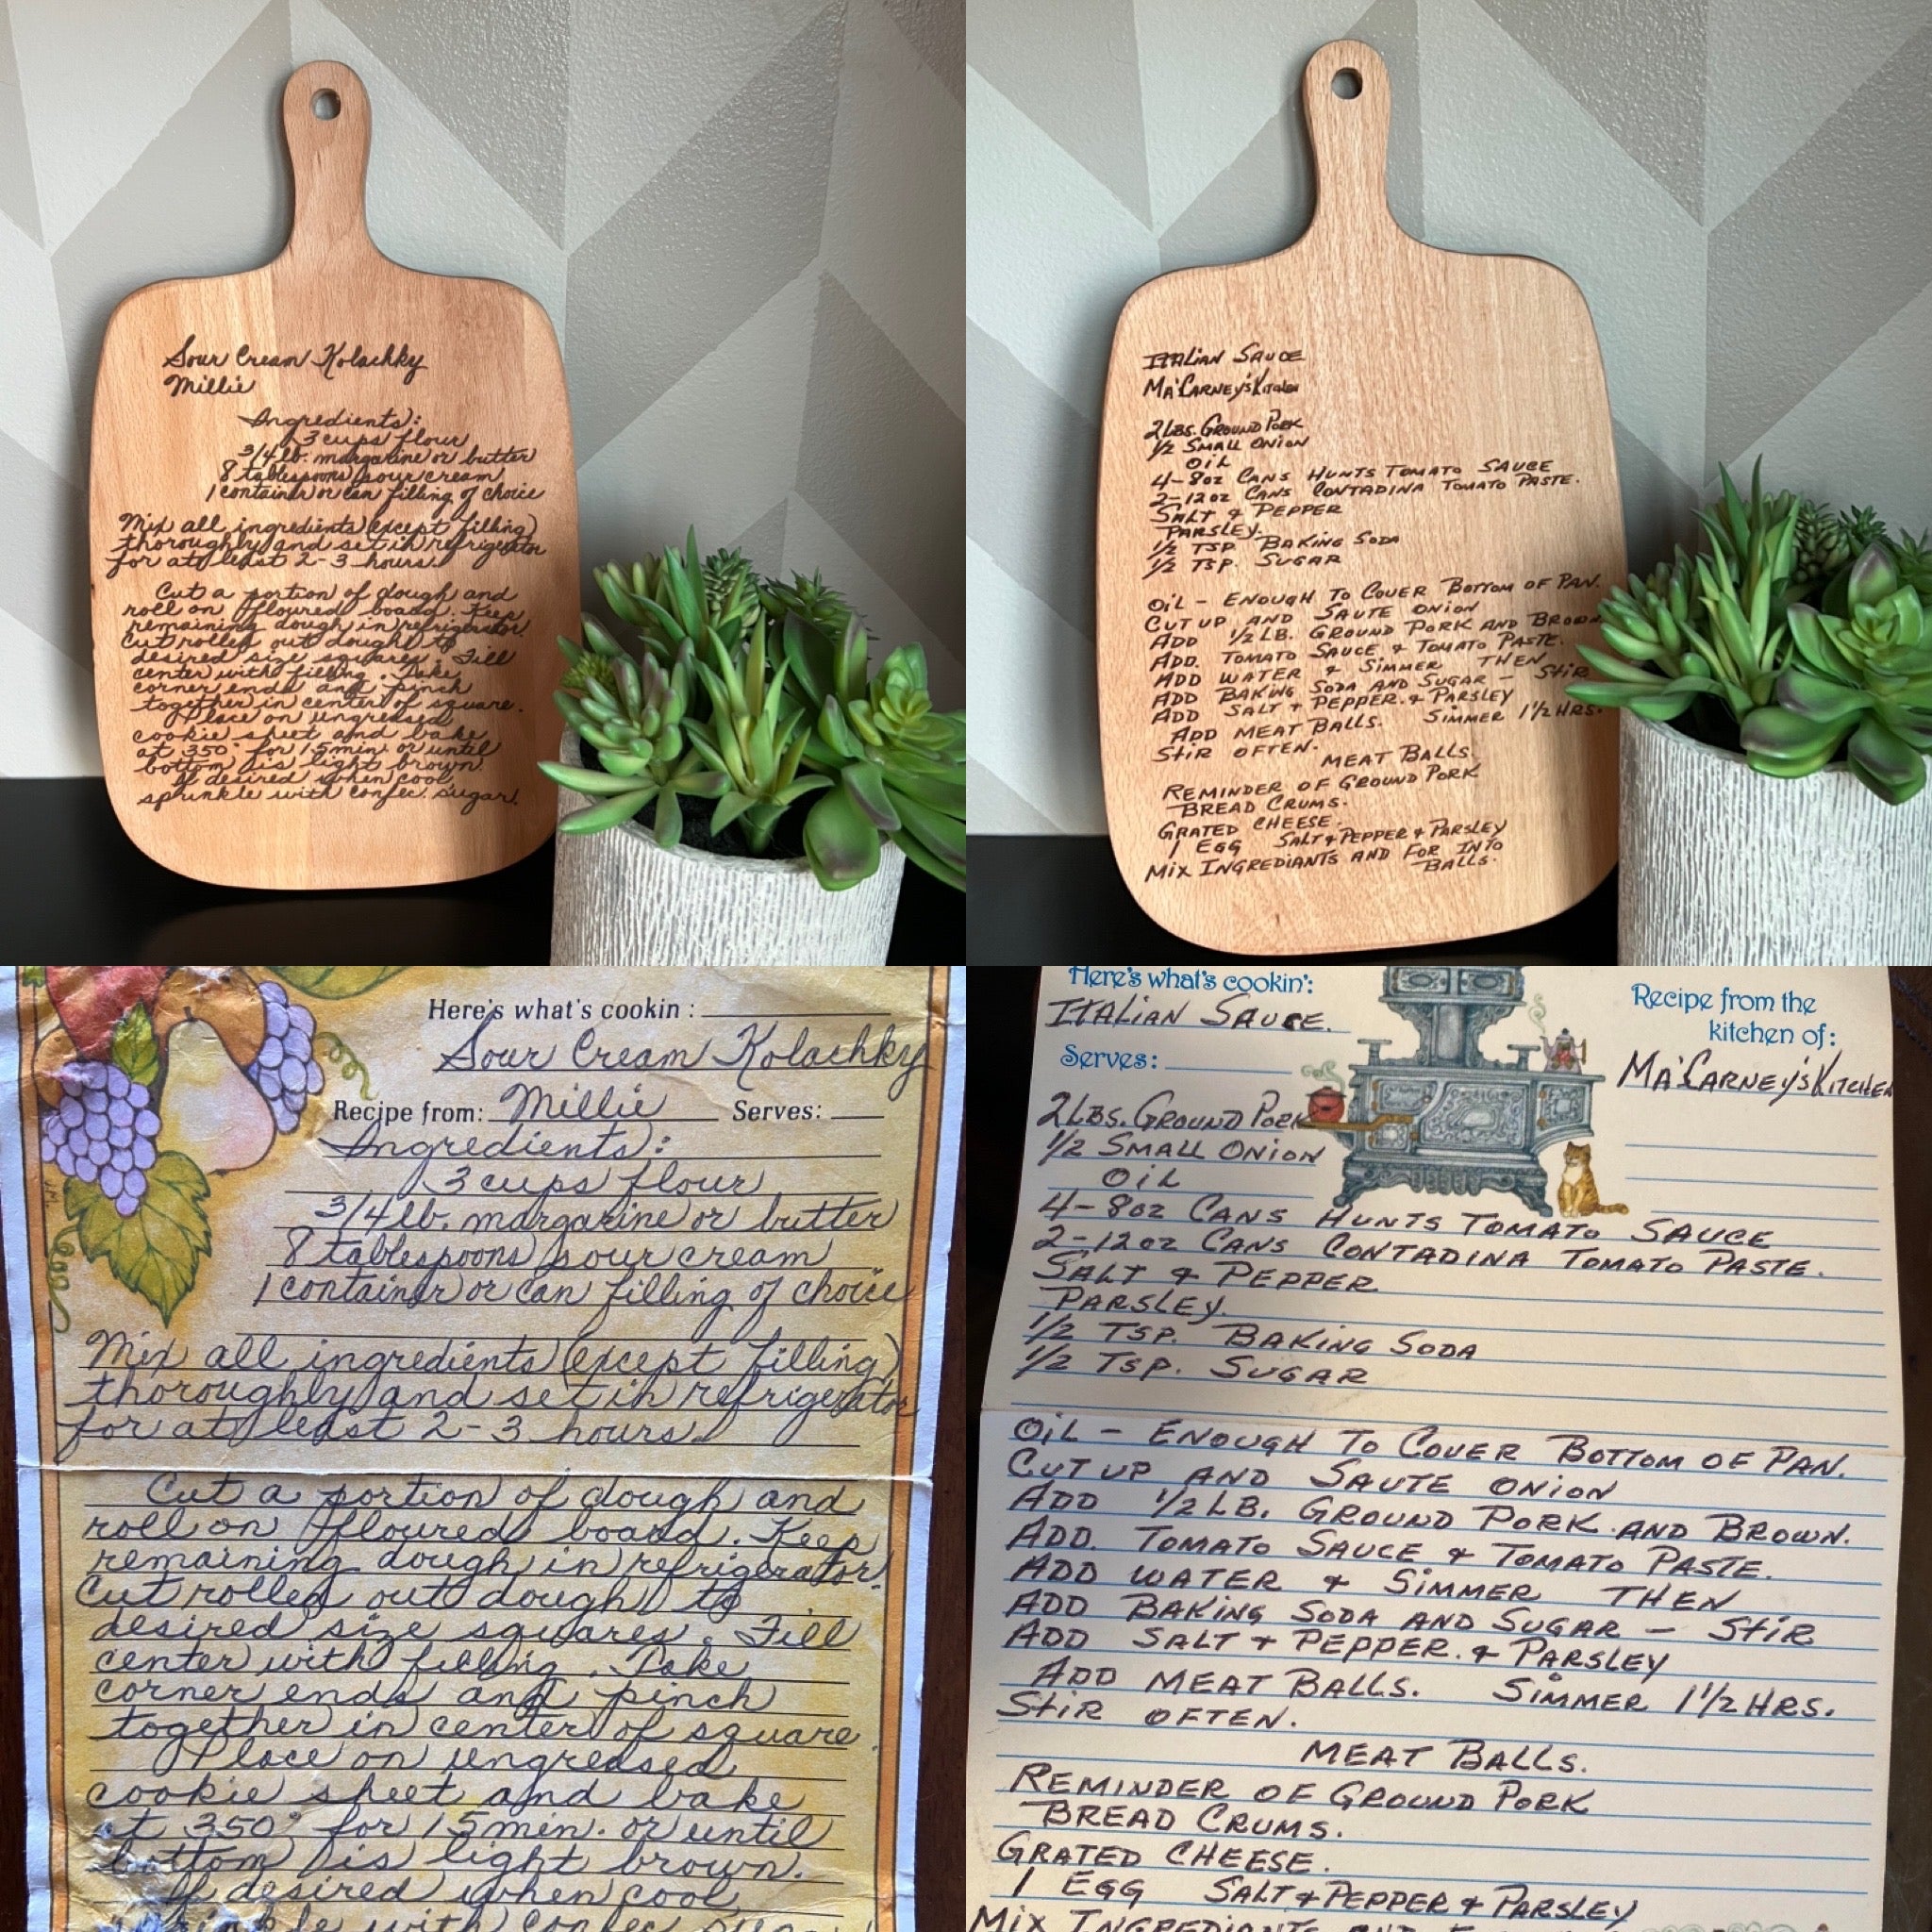 Sour Cream Kolachky
Millie
Ingredients:
3 cups flour
3/4 lb. margarine or butter
8 tablespoons sour cream
1 container or can filling of choice
Mix all ingredients (except filling)
thoroughly and set in refrigerator
for at least 2-3 hours.
Cut a portion of dough and
roll on floured board. Keep
remaining dough in refrigerator.
Cut rolled out dough to
desired size squares. Fill
center with filling. Take
corner ends and pinch
together in center of square.
Place on ungreased
cookie sheet and bake
at 350° for 15 min. or until
bottom is light brown.
If desired when cool
sprinkle with confec. sugar.
ITALIAN SAUCE
MA'CARNEY'S KITCHEN
2 LBS. GROUND PORK
1/2 SMALL ONION
OIL
4-8oz CANS HUNTS TOMATO SAUCE
2-12oz CANS CONTADINA TOMATO PASTE.
SALT & PEPPER
PARSLEY.
1/2 TSP. BAKING SODA
1/2 TSP. SUGAR
OIL - ENOUGH TO COVER BOTTOM OF PAN.
CUT UP AND SAUTE ONION
ADD 1/2 LB. GROUND PORK AND BROWN.
ADD. TOMATO SAUCE & TOMATO PASTE.
ADD WATER & SIMMER THEN
ADD BAKING SODA AND SUGAR - STIR
ADD SALT & PEPPER. & PARSLEY
ADD MEAT BALLS. SIMMER 1 1/2 HRS.
STIR OFTEN.
MEAT BALLS.
REMINDER OF GROUND PORK
BREAD CRUMS.
GRATED CHEESE.
1 EGG SALT & PEPPER & PARSLEY
MIX INGREDIANTS AND FOR INTO
BALLS.
Here's what's cookin:
Sour Cream Kolachky
Recipe from: Millie Serves:
Ingredients:
3 cups flour
3/4 lb. margarine or butter
8 tablespoons sour cream
1 container or can filling of choice
Mix all ingredients (except filling)
thoroughly and set in refrigerator
for at least 2-3 hours.
Cut a portion of dough and
roll on floured board. Keep
remaining dough in refrigerator.
Cut rolled out dough to
desired size squares. Fill
center with filling. Take
corner ends and pinch
together in center of square.
Place on ungreased
cookie sheet and bake
at 350° for 15 min. or until
bottom is light brown.
If desired when cool
sprinkle with confec. sugar
Here's what's cookin':
ITALIAN SAUCE.
Serves:
Recipe from the
kitchen of:
MA'CARNEY'S KITCHEN
2 LBS. GROUND PORK
1/2 SMALL ONION
OIL
4-8oz CANS HUNTS TOMATO SAUCE
2-12oz CANS CONTADINA TOMATO PASTE.
SALT & PEPPER
PARSLEY.
1/2 TSP. BAKING SODA
1/2 TSP. SUGAR
OIL - ENOUGH TO COVER BOTTOM OF PAN.
CUT UP AND SAUTE ONION
ADD 1/2 LB. GROUND PORK AND BROWN.
ADD. TOMATO SAUCE & TOMATO PASTE.
ADD WATER & SIMMER THEN
ADD BAKING SODA AND SUGAR - STIR
ADD SALT & PEPPER. & PARSLEY
ADD MEAT BALLS. SIMMER 1 1/2 HRS.
STIR OFTEN.
MEAT BALLS.
REMINDER OF GROUND PORK
BREAD CRUMS.
GRATED CHEESE.
1 EGG SALT & PEPPER & PARSLEY
MIX INGREDIANTS AND